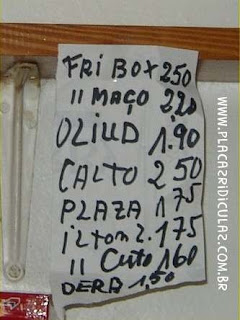 FRI BOX 250
11 MAÇO 2,20
OLIUD 1.90
CALTO 2 50
PLAZA 1 75
iLTOM 2.175
11 Cuto 160
DERA 1,50
WWW.PLACAZRIDICULAZ.COM.BR